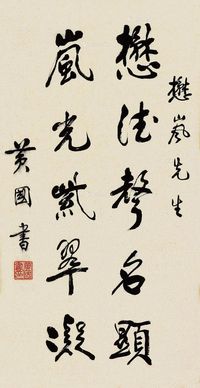 懋嵐先生
懋德聲名顯
嵐光紫翠凝
黃國書